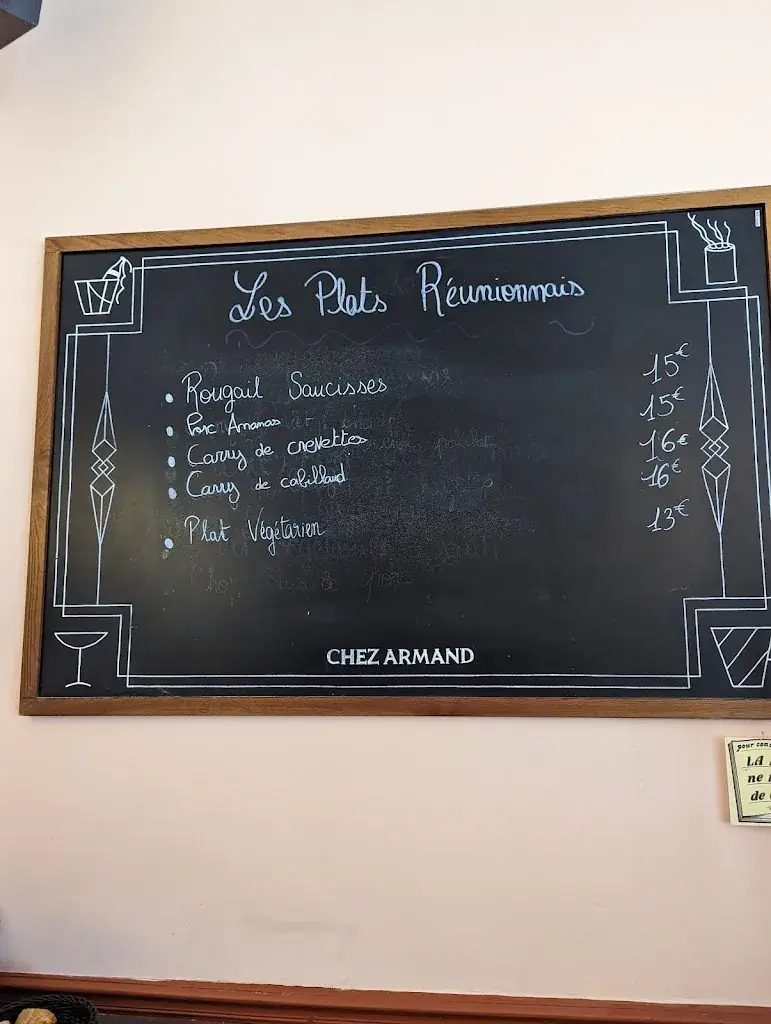 Les Plats Réunionnais
• Rougail Saucisses 15€
• Porc Ananas 15€
• Carry de crevettes 16€
• Carry de cabillaud 16€
• Plat Végétarien 13€
CHEZ ARMAND
pour
LA
ne
de